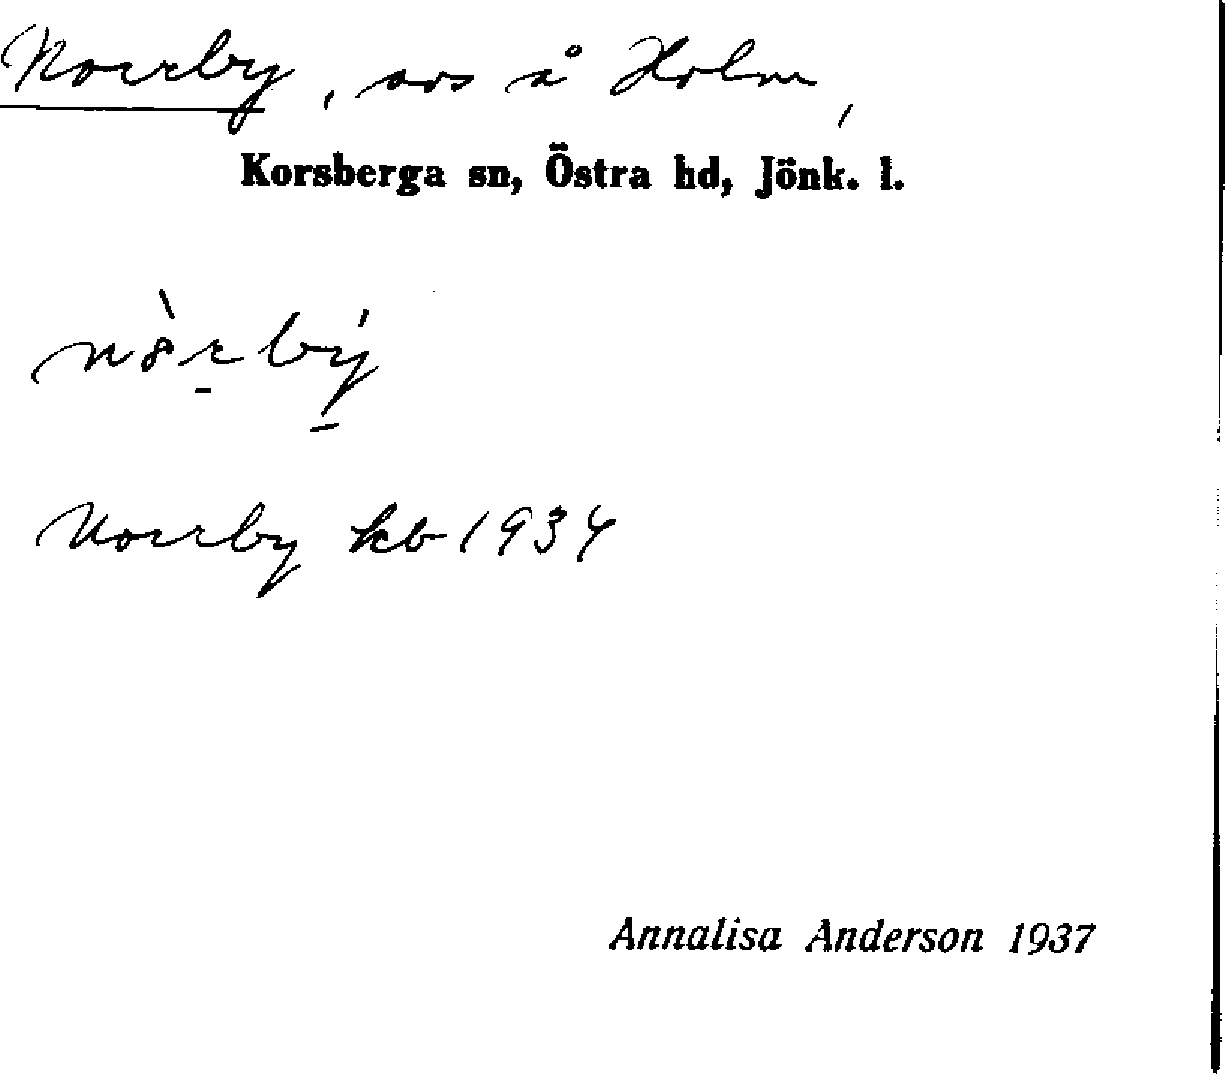 Norrby, avs å Holm,
Korsberga sn, Östra hd, Jönk. l.
nòrbý
Norrby kb 1934
Annalisa Anderson 1937